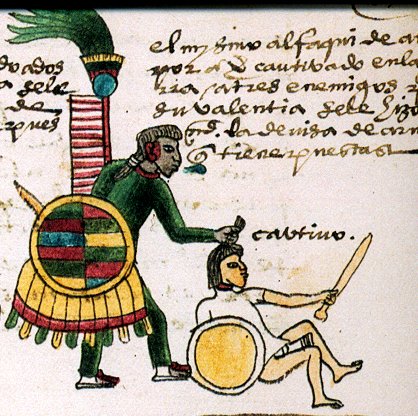 a sele
de
el mysmo alfaqui de ar
por aỽ cautivado en la
rra a tres enemigos
su valentia sele hizo
md. la devisa de arm
q tiene puestas
cautivo.